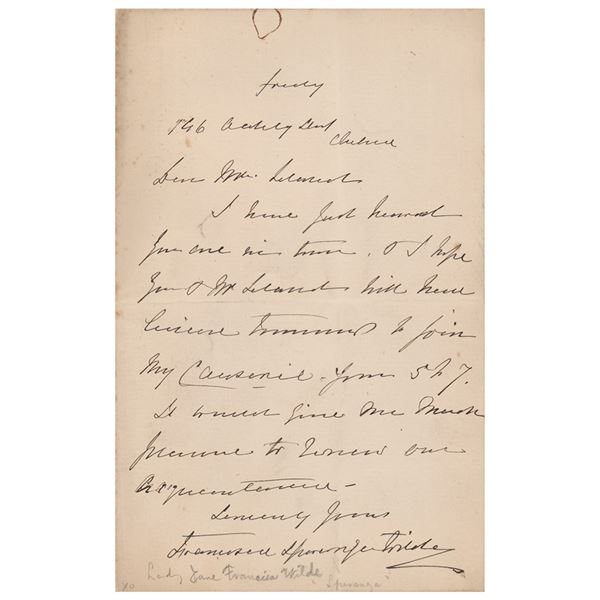 Friday
146 Oakley Street
Chelsea
Dear Mrs. Leland
I have just heard
you are in town. & I hope
you & Mr Leland will have
leisure tomorrow to join
my Causerie from 5 to 7.
It would give me much
pleasure to renew our
acquaintance –
Sincerely Yours
Francesca Speranza Wilde
Lady Jane Francisca Wilde
"Speranza"